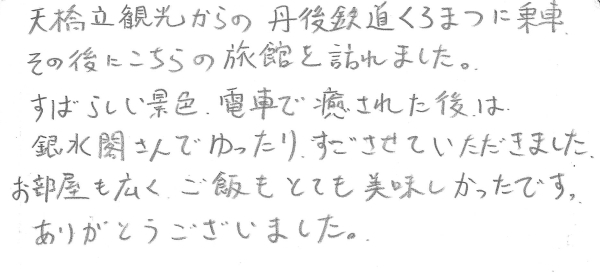 天橋立観光からの 丹後鉄道くろまつに乗車.
その後にこちらの旅館を訪れました。
すばらしい景色.電車で癒された後は
銀水閣さんでゆったり.すごさせていただきました.
お部屋も広く ご飯もとても美味しかったです,
ありがとうございました。